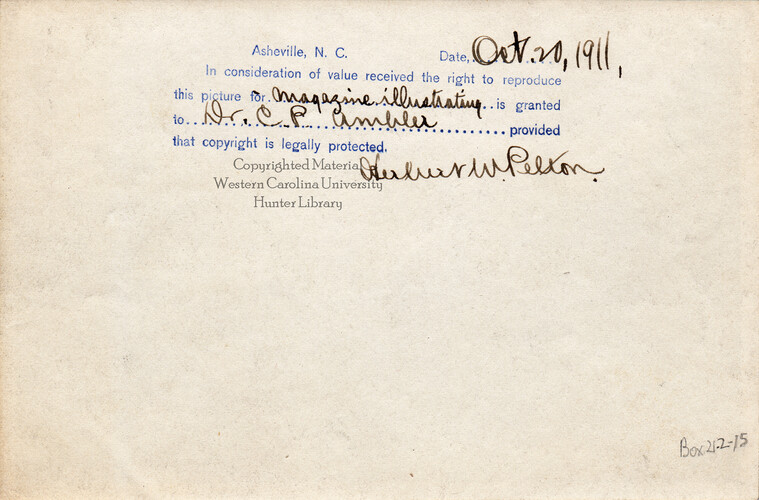 Asheville, N. C. Date, Oct. 20, 1911,
In consideration of value received the right to reproduce
this picture for magazine illustrating is granted
to Dr. C P Ambler provided
that copyright is legally protected.
Herbert W. Pelton.
Copyrighted Material
Western Carolina University
Hunter Library
Box 21.2-15